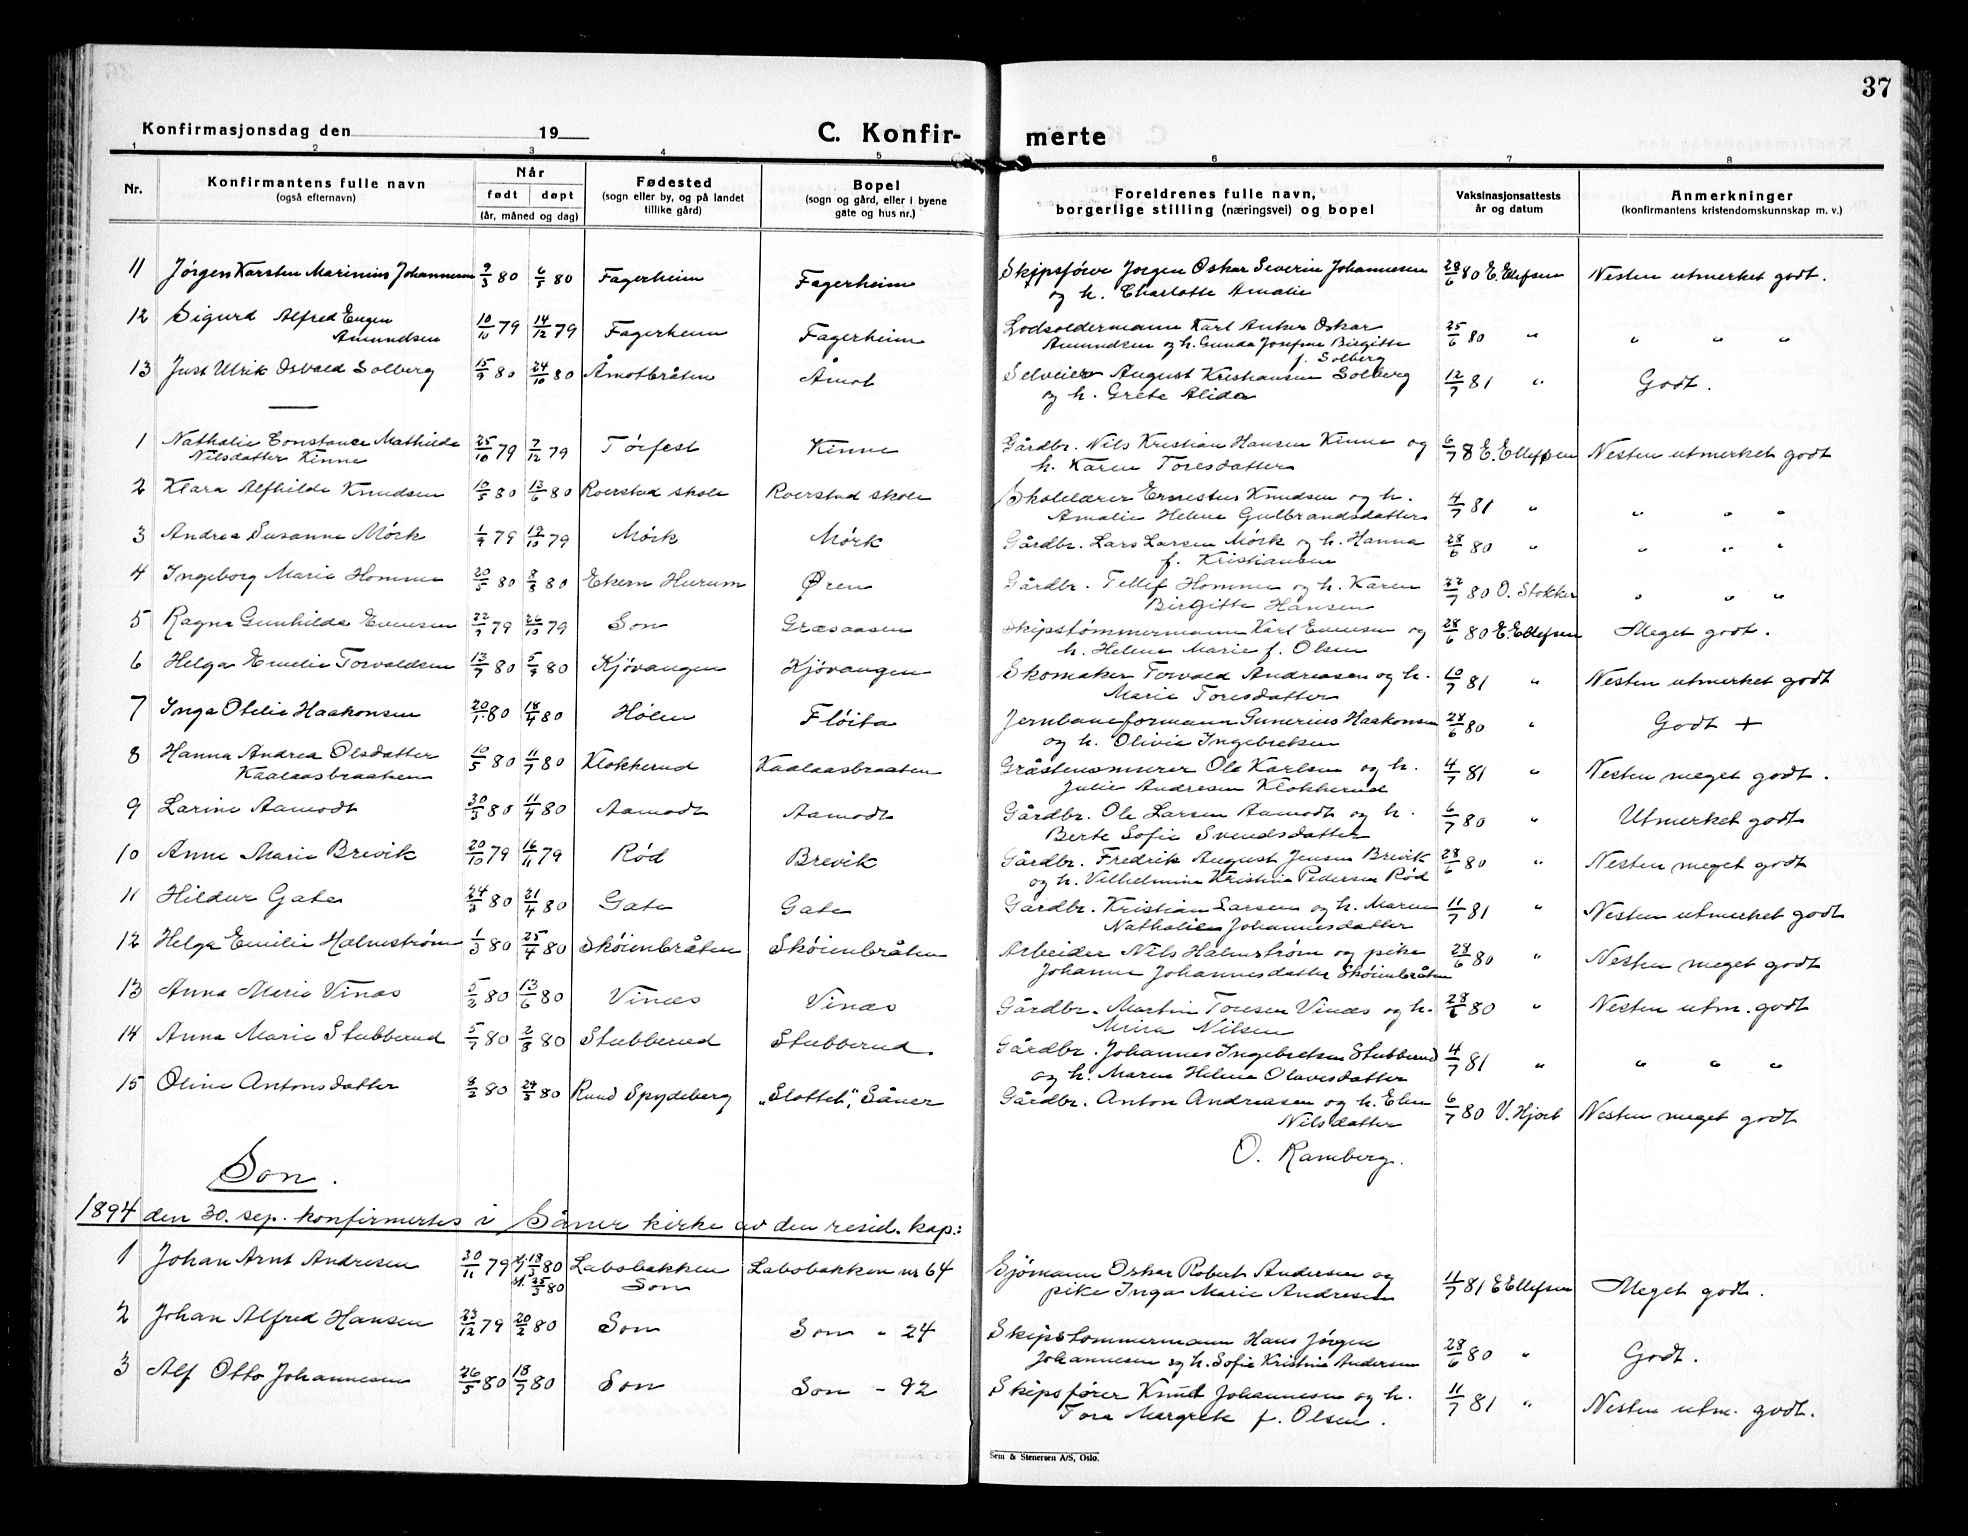 37
Konfirmasjonsdag den 19
C. Konfir-
merte
1 2 3 4 5 6 7 8
Nr.
Konfirmantens fulle navn
(også efternavn)
Når
født døpt
(år, måned og dag)
Fødested
(sogn eller by, og på landet
tillike gård)
Bopel
(sogn og gård, eller i byene
gate og hus nr.)
Foreldrenes fulle navn,
borgerlige stilling (næringsvei) og bopel
Vaksinasjonsattests
år og datum
Anmerkninger
(konfirmantens kristendomskunnskap m. v.)
11 Jörgen Karsten Marinius Johannesen 9/3 80 6/5 80 Fagerheim Fagerheim Skipsförer Jörgen Oskar Severin Johannesen 28/6 80 E. Ellefsen Nesten utmerket godt.
og h. Charlotte Amalie
12 Sigurd Alfred Eugen 10/10 79 14/12 79 Fagerheim Fagerheim Lodsoldermann Karl Anker Oskar 25/6 80 " " " "
Amundsen Amundsen og h. Gunda Josefine Birgitte
f. Solberg
13 Just Ulrik Osvald Solberg 15/9 80 24/10 80 Åmotbråten Åmot Selveier August Kristiansen Solberg 12/7 81 " Godt.
og h. Grete Alida
1 Nathalie Constance Mathilde 25/10 79 7/12 79 Törfest Kinne Gårdbr. Nils Kristian Hansen Kinne og 6/7 8 E. Ellefsen Nesten utmerket godt
Nilsdatter Kinne h. Karen Toresdatter
2 Klara Alfhilde Knudsen 10/5 80 13/6 80 Roerstad skole Roerstad skole Skolelærer Ernestus Knudsen og h. 4/7 81 " " " "
Amalie Helene Gulbrandsdatter
3 Andrea Susanne Mörk 1/9 79 19/10 79 Mörk Mörk Gårdbr. Lars Larsen Mörk og h. Hanna 28/6 80 " " " "
f. Kristiansen
4 Ingeborg Marie Homme 20/5 80 8/8 80 Ekern Hurum Øren Gårdbr. Tellef Homme og h. Karen 22/7 80 O. Stokker " " "
Birgitte Hansen
5 Ragna Gunhilda Evensen 22/9 79 26/10 79 Son Græsaasen Skipstömmermann Karl Evensen og 28/6 80 E. Ellefsen Meget godt.
h. Helene Marie f. Olsen
6 Helga Emelie Torvaldsen 13/7 80 5/9 80 Kjövangen Kjövangen Skomaker Torvald Andreasen og h. 10/7 81 " Nesten utmerket godt
Marie Toresdatter
7 Inga Otelie Haakonsen 20/1 80 18/4 80 Hölen Flöita Jernbaneformann Gunerius Haakonsen 28/6 80 " Godt +
og h. Olivie Ingebretsen
8 Hanna Andrea Olsdatter 10/5 80 11/7 80 Klokkerud Kaalaasbraaten Gråstensmurer Ole Karlsen og h. 4/7 81 " Nesten meget godt.
Kaalaasbraaten Julie Andresen Klokkerud
9 Larine Aamodt 30/3 80 11/4 80 Aamodt Aamodt Gårdbr. Ole Larsen Aamodt og h. 6/7 80 " Utmerket godt
Berte Sofie Svendsdatter
10 Anne Marie Brevik 20/10 79 16/11 79 Rød Brevik Gårdbr. Fredrik August Jensen Brevik 28/6 80 " Nesten meget godt
og h. Vilhelmine Kristine Pedersen Rød
11 Hildur Gate 24/3 80 21/4 80 Gate Gate Gårdbr. Kristian Larsen og h. Maren 11/7 81 " Nesten utmerket godt
Nathalie Johannesdatter
12 Helga Emilie Halmström 1/3 80 25/4 80 Sköienbråten Sköienbråten Arbeider Nils Halmström og pike 28/6 80 " Nesten meget godt
Johanne Johannesdatter Sköienbråten
13 Anna Marie Vinæs 5/2 80 13/6 80 Vinæs Vinæs Gårdbr. Martin Toresen Vinæs og h. 28/6 80 " Nesten utm. godt
Mina Nilsen
14 Anna Marie Stubberud 5/7 80 2/8 80 Stubberud Stubberud. Gårdbr. Johannes Ingebretsen Stubberud 4/7 81 " " " "
og h. Maren Helene Olavesdatter
15 Oline Antonsdatter 8/2 80 29/3 80 Ruud Spydeberg „Slottet", Såner Gårdbr. Anton Andreasen og h. Elen 6/7 80 V. Hjort Nesten meget godt
Nilsdatter
O. Ramberg.
Son.
1894 den 30. sep. konfirmertes i Såner kirke av den resid. kap.:
1 Johan Arnt Andresen 30/11 79 Hj. 18/3 80 Labobakken Labobakken nr 64 Sjömann Oskar Robert Andersen og 11/7 81 E Ellefsen Meget godt.
K. 25/3 80 Son pike Inga Marie Andresen
2 Johan Alfred Hansen 23/12 79 20/2 80 Son Son - 24 Skipstömmermann Hans Jörgen 28/6 80 " Godt.
Johannesen og h. Sofie Kristine Andersen
3 Alf Otto Johannesen 26/5 80 18/7 80 Son Son - 92 Skipsförer Knut Johannesen og h. 11/7 81 " Nesten utm. godt.
Tora Margrete f. Olsen.
Sem & Stenersen A/S, Oslo.